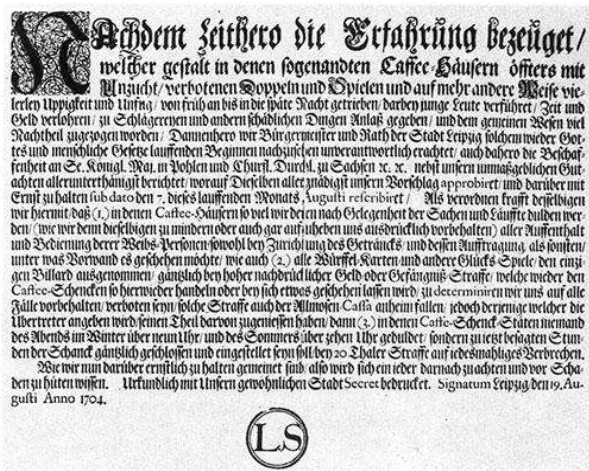 NAchdem zeithero die Erfahrung bezeuget/
welcher gestalt in denen sogenandten Caffee-Häusern öffters mit
Unzucht/ verbotenen Doppeln und Spielen und auf mehr andere Weise vie-
lerley Uppigkeit und Unfug/ von früh an bis in die späte Nacht getrieben/ darbey junge Leute verführet/ Zeit und
Geld verlohren/ zu Schlägereyen und andern schädlichen Dingen Anlaß gegeben/ und dem gemeinen Wesen viel
Nachtheil zugezogen worden/ Dannenhero wir Bürgermeister und Rath der Stadt Leipzig solchem wieder Got-
tes und menschliche Gesetze lauffenden Beginnen nachzusehen unverantwortlich erachtet/ auch dahero die Beschaf-
fenheit an Se. Königl. Maj. in Pohlen und Churfl. Durchl. zu Sachsen ꝛc. ꝛc. nebst unsern unmaßgeblichen Gut-
achten allerunterthänigst berichtet/ worauf Dieselben allergnädigst unsern Vorschlag approbiret/ und darüber mit
Ernst zu halten sub dato den 7. dieses lauffenden Monats Augusti rescribiret/ Als verordnen krafft desselbigen
wir hiermit/ daß (1.) in denen Caffee-Häusern so viel wir deren nach Gelegenheit der Sachen und Läuffte dulden wer-
den/ (wie wir denn dieselbigen zu mindern oder auch gar aufzuheben uns ausdrücklich vorbehalten) aller Auffenthalt
und Bedienung derer Weibs-Personen sowohl bey Zurichtung des Geträncks/ und dessen Aufftragung, als sonsten/
unter was Vorwand es geschehen möchte/ wie auch (2.) alle Würffel-Karten und andere Glücks-Spiele/ den einzi-
gen Billard ausgenommen/ gäntzlich bey hoher nachdrücklicher Geld- oder Gefängniß-Straffe/ welche wieder den
Caffee-Schencken so hierwieder handeln oder bey sich etwas geschehen lassen wird/ zu determiniren wir uns auf alle
Fälle vorbehalten/ verboten seyn/ solche Straffe auch der Allmosen-Cassa anheim fallen/ jedoch derjenige welcher die
Ubertreter angeben wird/ seinen Theil darvon zugeniessen haben/ dann (3.) in denen Caffe-Schenck-Stäten niemand
des Abends im Winter über neun Uhr/ und des Sommers über zehen Uhr geduldet/ sondern zu jetzt besagten Stun-
den der Schanck gäntzlich geschlossen und eingestellet seyn soll/ bey 20 Thaler Straffe auf iedesmahliges Verbrechen.
Wie wir nun darüber ernstlich zu halten gemeinet sind/ also wird sich ein ieder darnach zu achten und vor Scha-
den zu hüten wissen. Uhrkundlich mit Unsern gewöhnlichen Stadt Secret bedrucket. Signatum Leipzig/ den 19. Au-
gusti Anno 1704.
LS